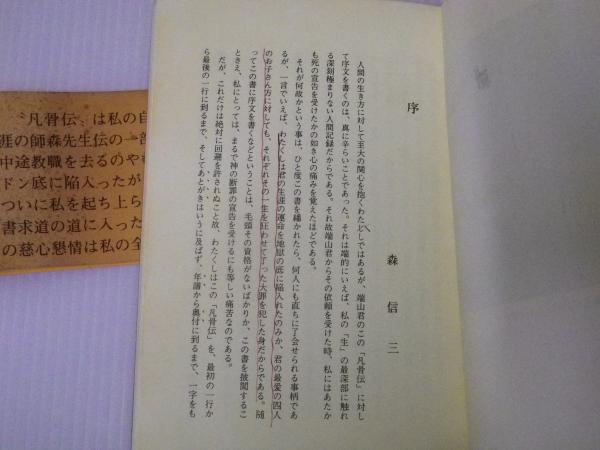 序
森信三
人間の生き方に対して至大の関心を抱くわたしではあるが、端山君のこの「凡骨伝」に対し
て序文を書くのは、真に辛いことであった。それは端的にいえば、私の「生」の最深部に触れ
る深刻極まりない人間記録だからである。それ故端山君からその依頼を受けた時、私にはあたか
も死の宣告を受けたかの如き心の痛みを覚えたほどである。
それが何故かという事は、ひとたびこの書を繙かれたら、何人にも直ちに了会せられる事柄であ
るが、一言でいえば、わたくしは君の生涯の運命を地獄の底に陥入れたのみか、君の最愛の四人
のお子さん方に対しても、それぞれその一生を狂わせて了った大罪を犯した身だからである。随
ってこの書に序文を書くなどということは、毛頭その資格がないばかりか、この書を披閲するこ
とさえ、私にとっては、まるで神の断罪の宣告を受けるにも等しい痛苦なのである。
だが、これだけは絶対に回避を許されぬこと故、わたくしはこの「凡骨伝」を、最初の一行か
ら最後の一行に到るまで、そしてあとがきはいうに及ばず、年譜から奥付に到るまで、一字をも
〝凡骨伝〟は私の自
涯の師森先生伝の一部
中途教職を去るのや
ドン底に陥入ったが
ついに私を起ち上ら
書求道の道に入った
の慈心懇情は私の全